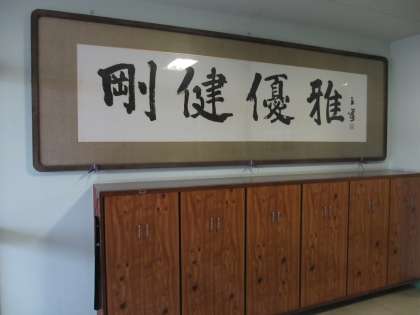 剛健優雅